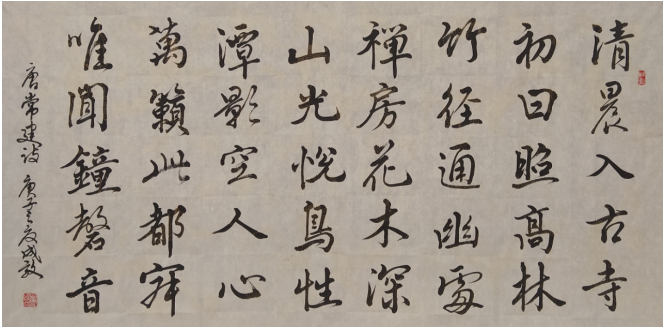 清晨入古寺
初日照高林
竹径通幽處
禅房花木深
山光悦鳥性
潭影空人心
萬籟此都寂
唯聞鐘磬音
唐常建诗 庚子年夏成敦